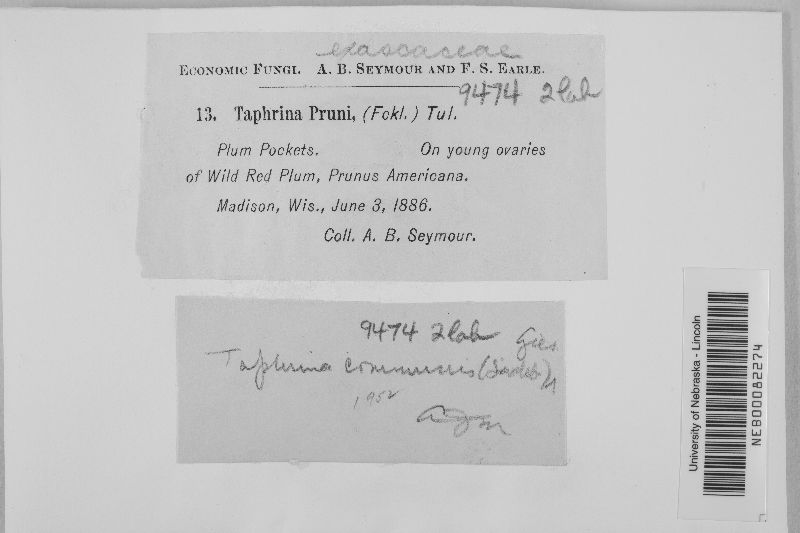 exoascaceae
ECONOMIC FUNGI. A. B. SEYMOUR AND F. S. EARLE.
9474 2lab
13. Taphrina Pruni, (Fckl.) Tul.
Plum Pockets. On young ovaries
of Wild Red Plum, Prunus Americana.
Madison, Wis., June 3, 1886.
Coll. A. B. Seymour.
9474 2lab
Gies.
Taphrina communis (Sadeb)
1952
University of Nebraska - Lincoln
NEB00082274